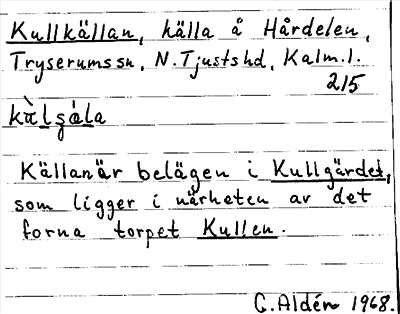 Kullkällan, källa å Hårdelen,
Tryserumssn, N. Tjustshd, Kalm. l.
215
kùlʂä́la
Källan är belägen i Kullgärdet,
som ligger i närheten av det
forna torpet Kullen.
C. Aldén 1968.